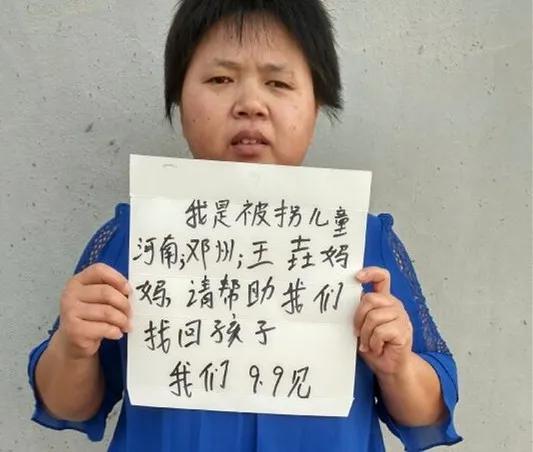 我是被拐儿童
河南;邓州;王垚妈
妈,请帮助我们
找回孩子
我们9.9见